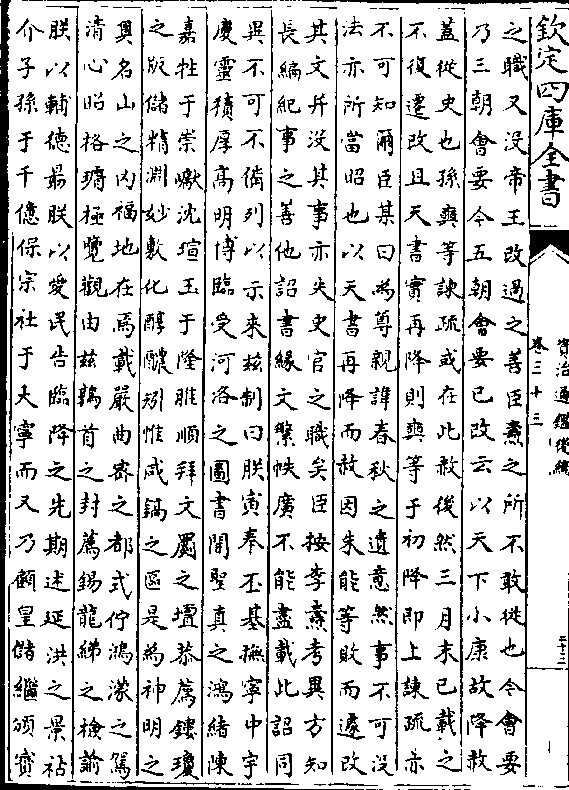 欽定四庫全書
資治通鑑後編
卷三十三
三十三
之職又沒帝王改過之善臣燾之所不敢從也今會要
乃三朝會要今五朝會要已改云以天下小康故降赦
蓋從史也孫奭等諫疏或在此赦後然三月末已載之
不復遷改且天書實再降則奭等于初降即上諫疏亦
不可知爾臣某曰為尊親諱春秋之遺意然事不可沒
法亦所當昭也以天書再降而赦因朱能等敗而遽改
其文并沒其事亦失史官之職矣臣按李燾考異方知
長編紀事之善他詔書緣文繁帙廣不能盡載此詔同
異不可不備列以示來茲制曰朕寅奉丕基撫寧中宇
慶靈積厚高明博臨受河洛之圖書開聖真之鴻緒陳
嘉牲于崇巘沈瑄玉于隆脽順拜文罽之壇恭薦鏤瓊
之版儲精淵妙敷化醇醲矧惟咸鎬之區是為神明之
輿名山之內福地在焉載嚴曲密之都式佇鴻濛之駕
清心昭格璿極覽觀由茲鶉首之封薦錫龍綈之檢諭
朕以輔德朂朕以愛民告臨降之先期述延洪之景祜
介子孫于千億保宗社于大寧而又乃顧皇儲繼頒寶